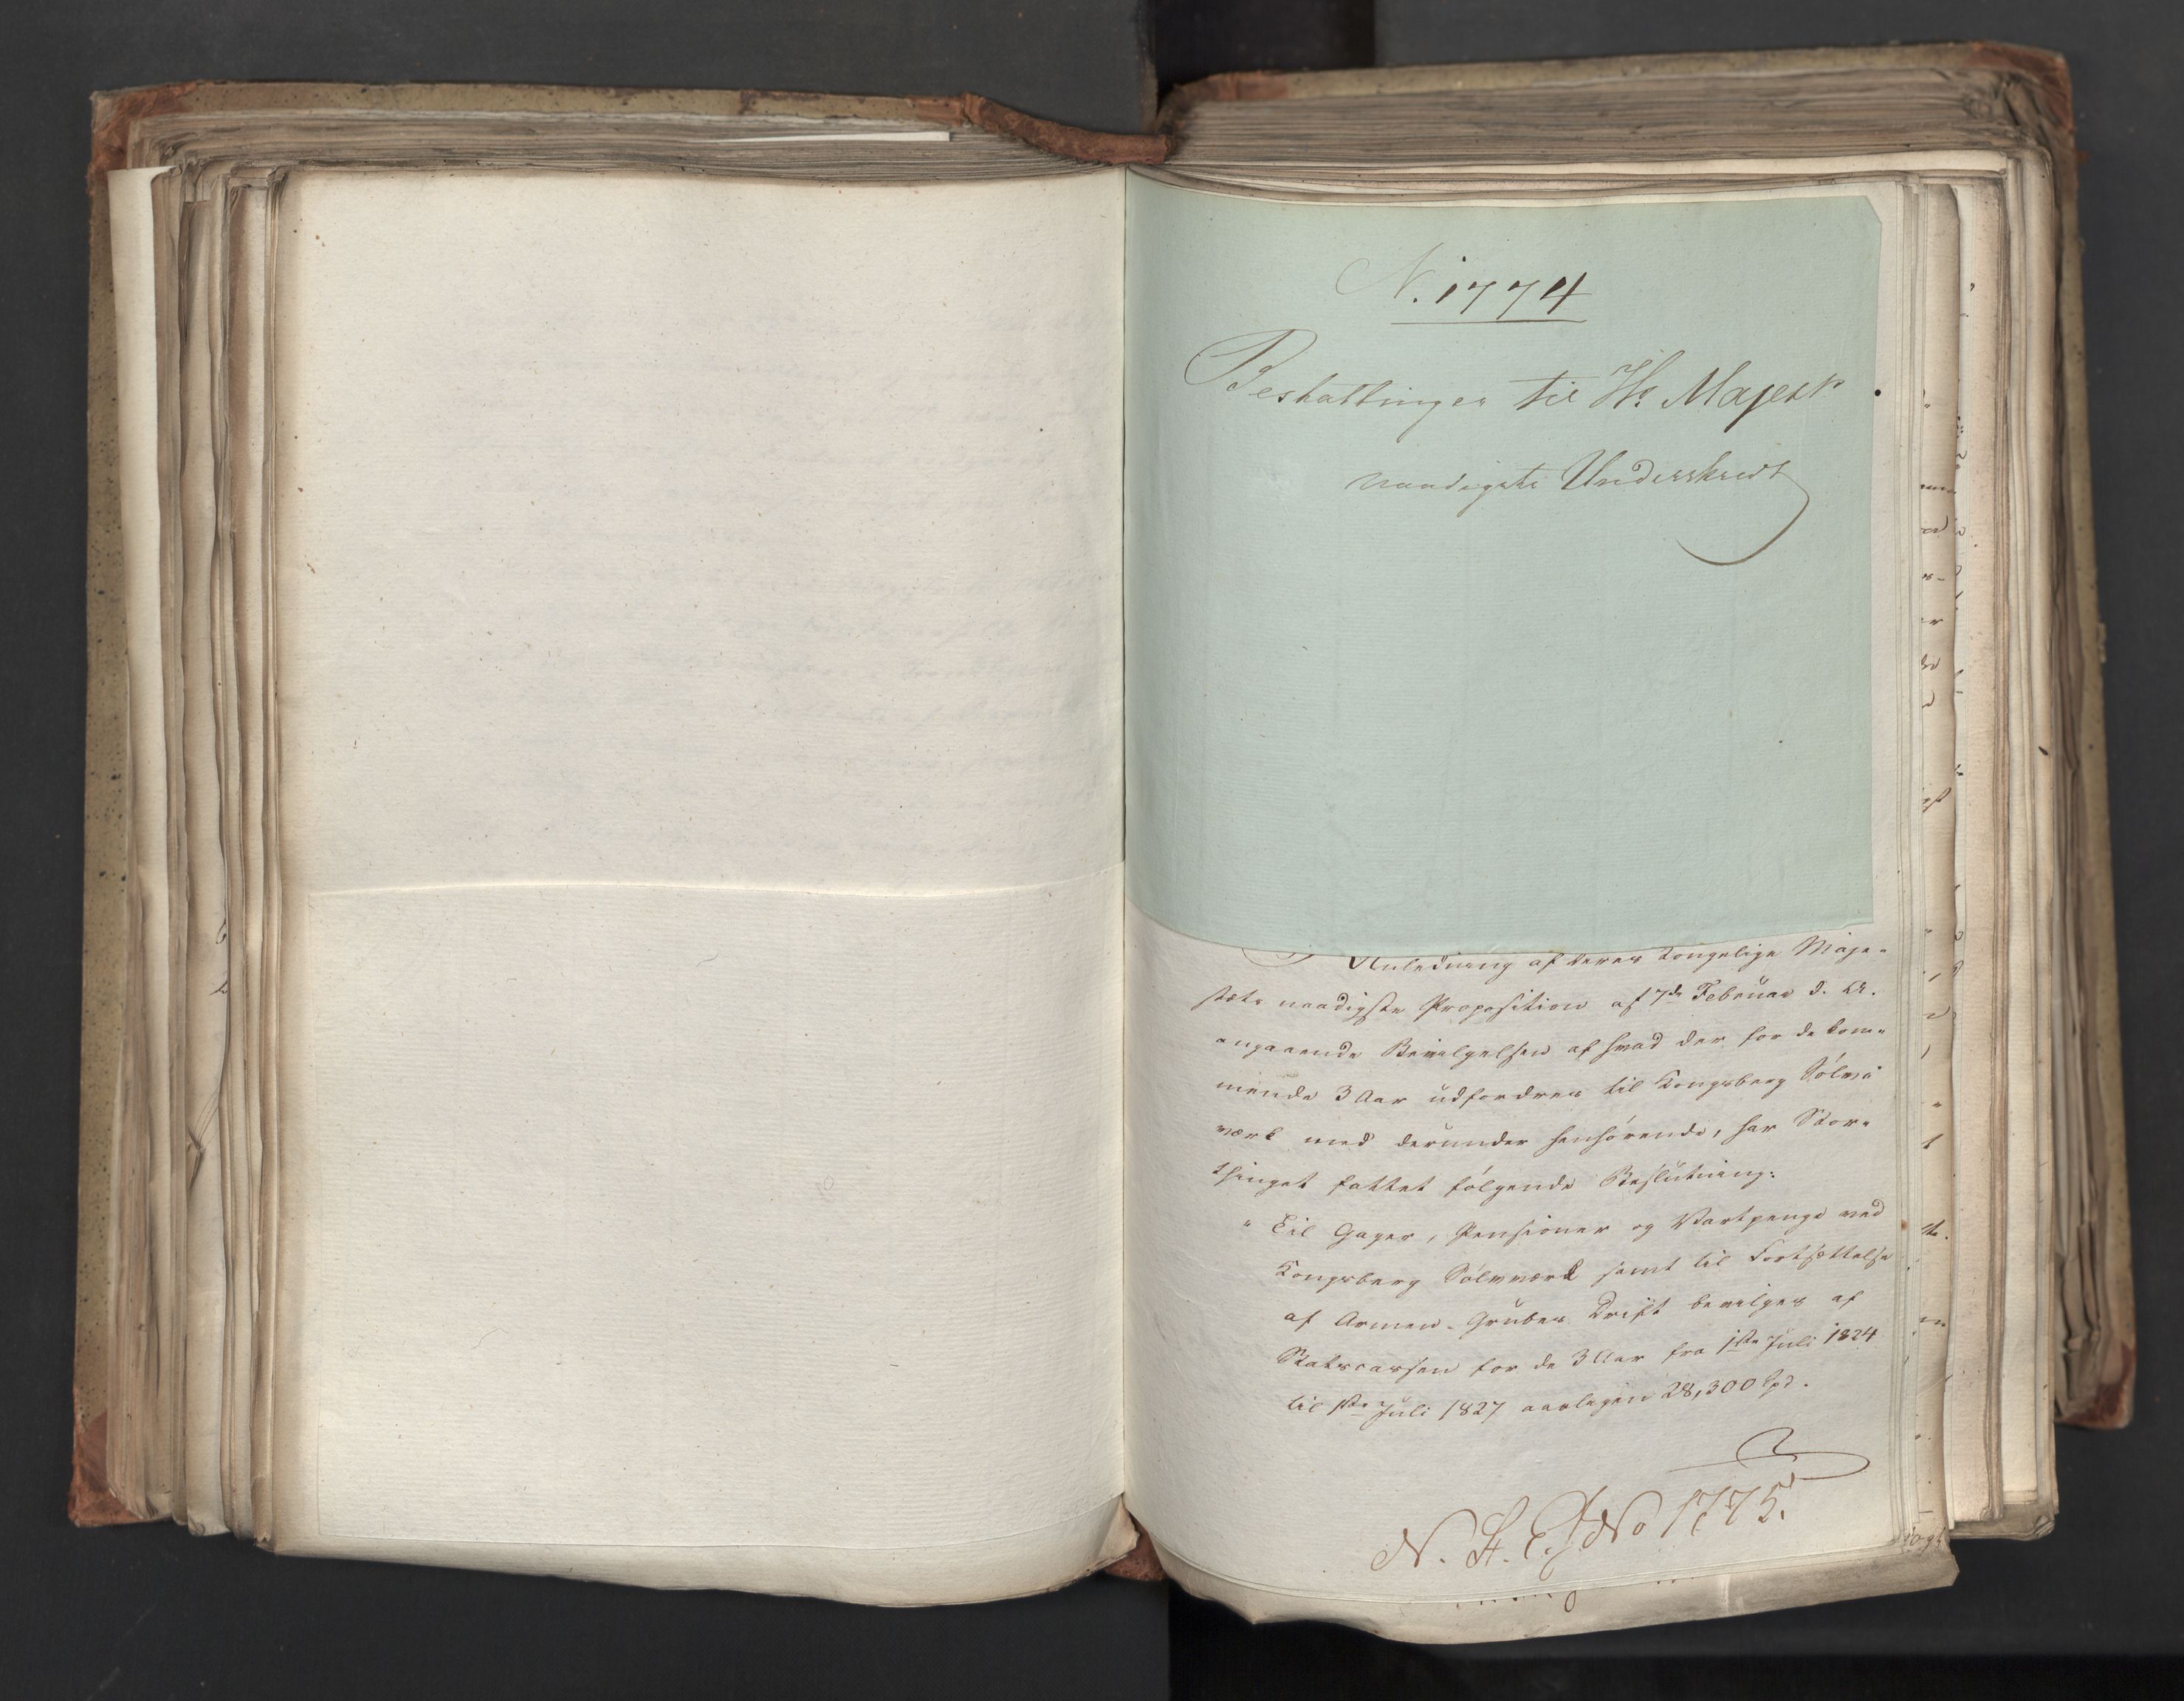 N. 1774
Bestallinger til Hs Majests
naadigste Underskrivt
Anledning af Deres Kongelige Maje-
stæts naadigste Proposition af 7de Februar d. A.
angaaende Bevilgelsen af hvad der for de kom-
mende 3 Aar udfordres til Kongsberg Sølv-
værk med derunder henhørende, har Stor-
thinget fattet følgende Beslutning:
"Til Gager, Pensioner og Vartpenge ved
Kongsberg Sølvværk samt til Fortsættelse
af Armen-Grubes Drift bevilges af
Statscassen for de 3 Aar fra 1ste Juli 1824
til 1ste Juli 1827 aarligen 28,300 Spd.
N. St. E. No 1775.